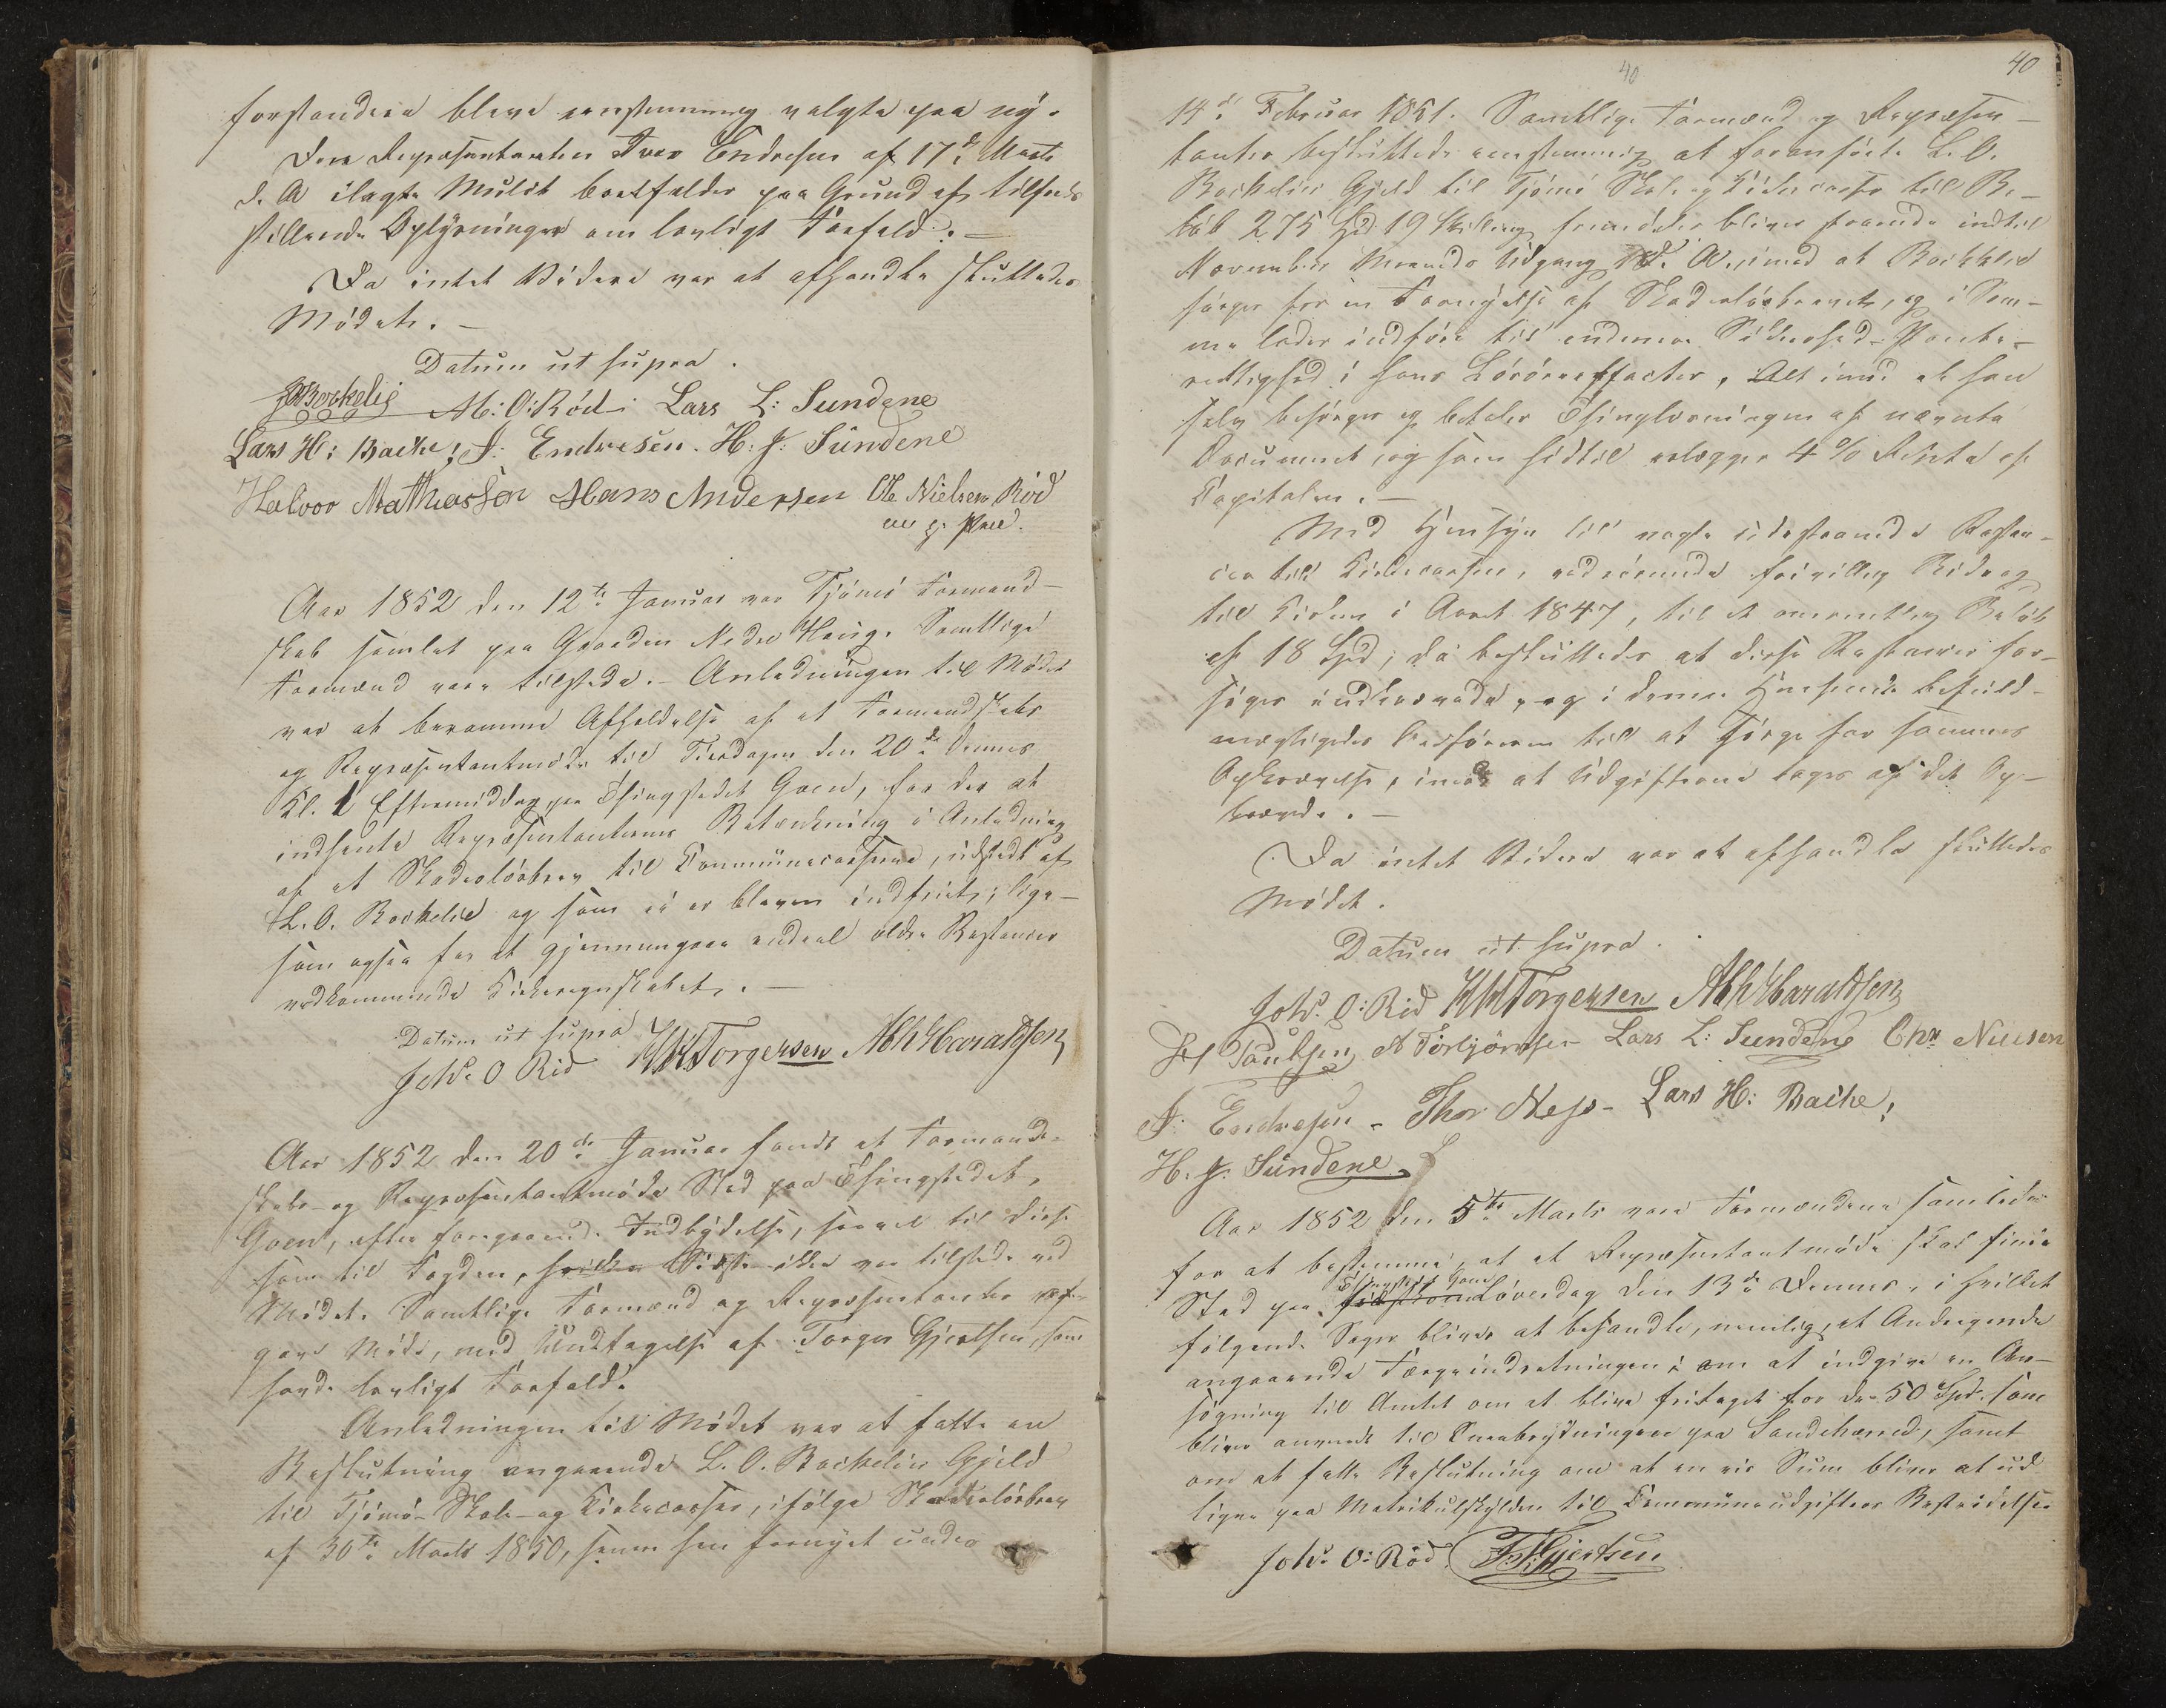 forstandere bleve eenstemmig valgte paa ny.
Den Repræsentanten Iver Endresen af 17de Marts
d. A ilagte Mulct bortfalder paa Grund af tilfreds
stillende Oplysninger om lovligt Forfald. —
Da intet Videre var at afhandle sluttedes
Mødet. —
Datum ut supra.
Bockelie M: O: Röd. Lars L: Sundene
Lars H: Bache; I: Endresen. H. J: Sundene
Halvor Mathiassen Hans Andersen Ole Nielsen Röd
m. p. Pen.
Aar 1852 den 12te Januar var Tjömö Formand-
skab samlet paa Gaarden Nedre Haug. Samtlige
Formænd vare tilstede. — Anledningen til Mödet
var at beramme Afholdelse af et Formandskabs
og Repræsentantmöde til Tirsdagen den 20de dennes
Kl. 1 Eftermiddag paa Thingstedet Goen, for der at
indhente Repræsentanternes Betænkning i Anledning
af et Skadeslösbrev til Communecasserne, udstedt af
L. O. Bockelie og som ei er bleven indfriet; lige-
som ogsaa for at gjennemgaae endeel ældre Restancer
vedkommende Kirkeregnskabet. —
Datum ut supra
Johs. O Röd Torgersen Abh Haraldsen
Aar 1852 den 20de Januar fandt et Formand-
skabs- og Repræsentantmöde Sted paa Thingstedet,
Goen, efter foregaaende Indbydelse, saavel til disse
som til Fogden, hvilken Sidste ikke var tilstede ved
Mödet. Samtlige Formænd og Repræsentanter af-
gave Möde, med Undtagelse af Torger Gjertsen, som
havde lovligt Forfald.
Anledningen til Mödet var at fatte en
Beslutning angaaende L. O. Bockelies Gjeld
til Tjömö Skole- og Kirkecasser, ifölge Skadeslösbrev
af 30te Marts 1850, samme fornyet under
40
40
14de Februar 1851. Samtlige Formænd og Repræsen-
tanter besluttede eenstemmig at foranförte L. O.
Bockelies Gjeld til Tjömö Skole og Kirkecasse til Be-
löb 275 Spd 19 Skilling fremdeles bliver staaende indtil
November Maaneds Udgang d. A., imod at Bockelie
sörger for en Fornyelse af Skadeslösbrevet, og i Sam-
me lader indföre til endmere Sikkerhed Pante-
rettighed i hans Lösöreeffecter, Alt imod at han
selv besörger og betaler Thinglæsningen af nævnte
Document, og som hidtil erlægger 4 % Rente af
Capitalen. —
Med Hensyn til nogle udestaaende Restan-
cer til Kirkecassen, vedrörende frivillig Bidrag
til Kirken i Aaret 1847, til et omentlig Belöb
af 18 Spd, da besluttedes at disse Restancer for-
söges indkrævede, og i denne Henseende befuld-
mægtigedes Ordföreren til at sörge for sammes
Opkrævelse, imod at Udgifterne tages af det Op-
krævede. —
Da intet Videre var at afhandle sluttedes
Mödet.
Datum ut supra.
Johs. O: Röd Torgersen Abh Haraldsen
Paulsen A Torbjörnsen Lars L: Sundene Chr Nielsen
I: Endresen - Thor Ness - Lars H: Bache;
H. J: Sundene
Aar 1852 den 5te Marts vare Formændene samlede
for at bestemme, at et Repræsentantmöde skal finde
Thingstedet Goen
Sted paa Löverdag den 13de dennes, i hvilket
fölgende Sager bliver at behandle, nemlig, et Andragende
angaaende Færgeindretningen; om at indgive en An-
sögning til Amtet om at blive fritaget for de 50 Spd. som
bliver anvendt til Steenbrydningen paa Sandehered, samt
om at fatte Beslutning om at en vis Sum bliver at ud
ligne paa Matrikulskylden til Communeudgifters Bestridelse
Johs. O: Röd. T. Gjertsen